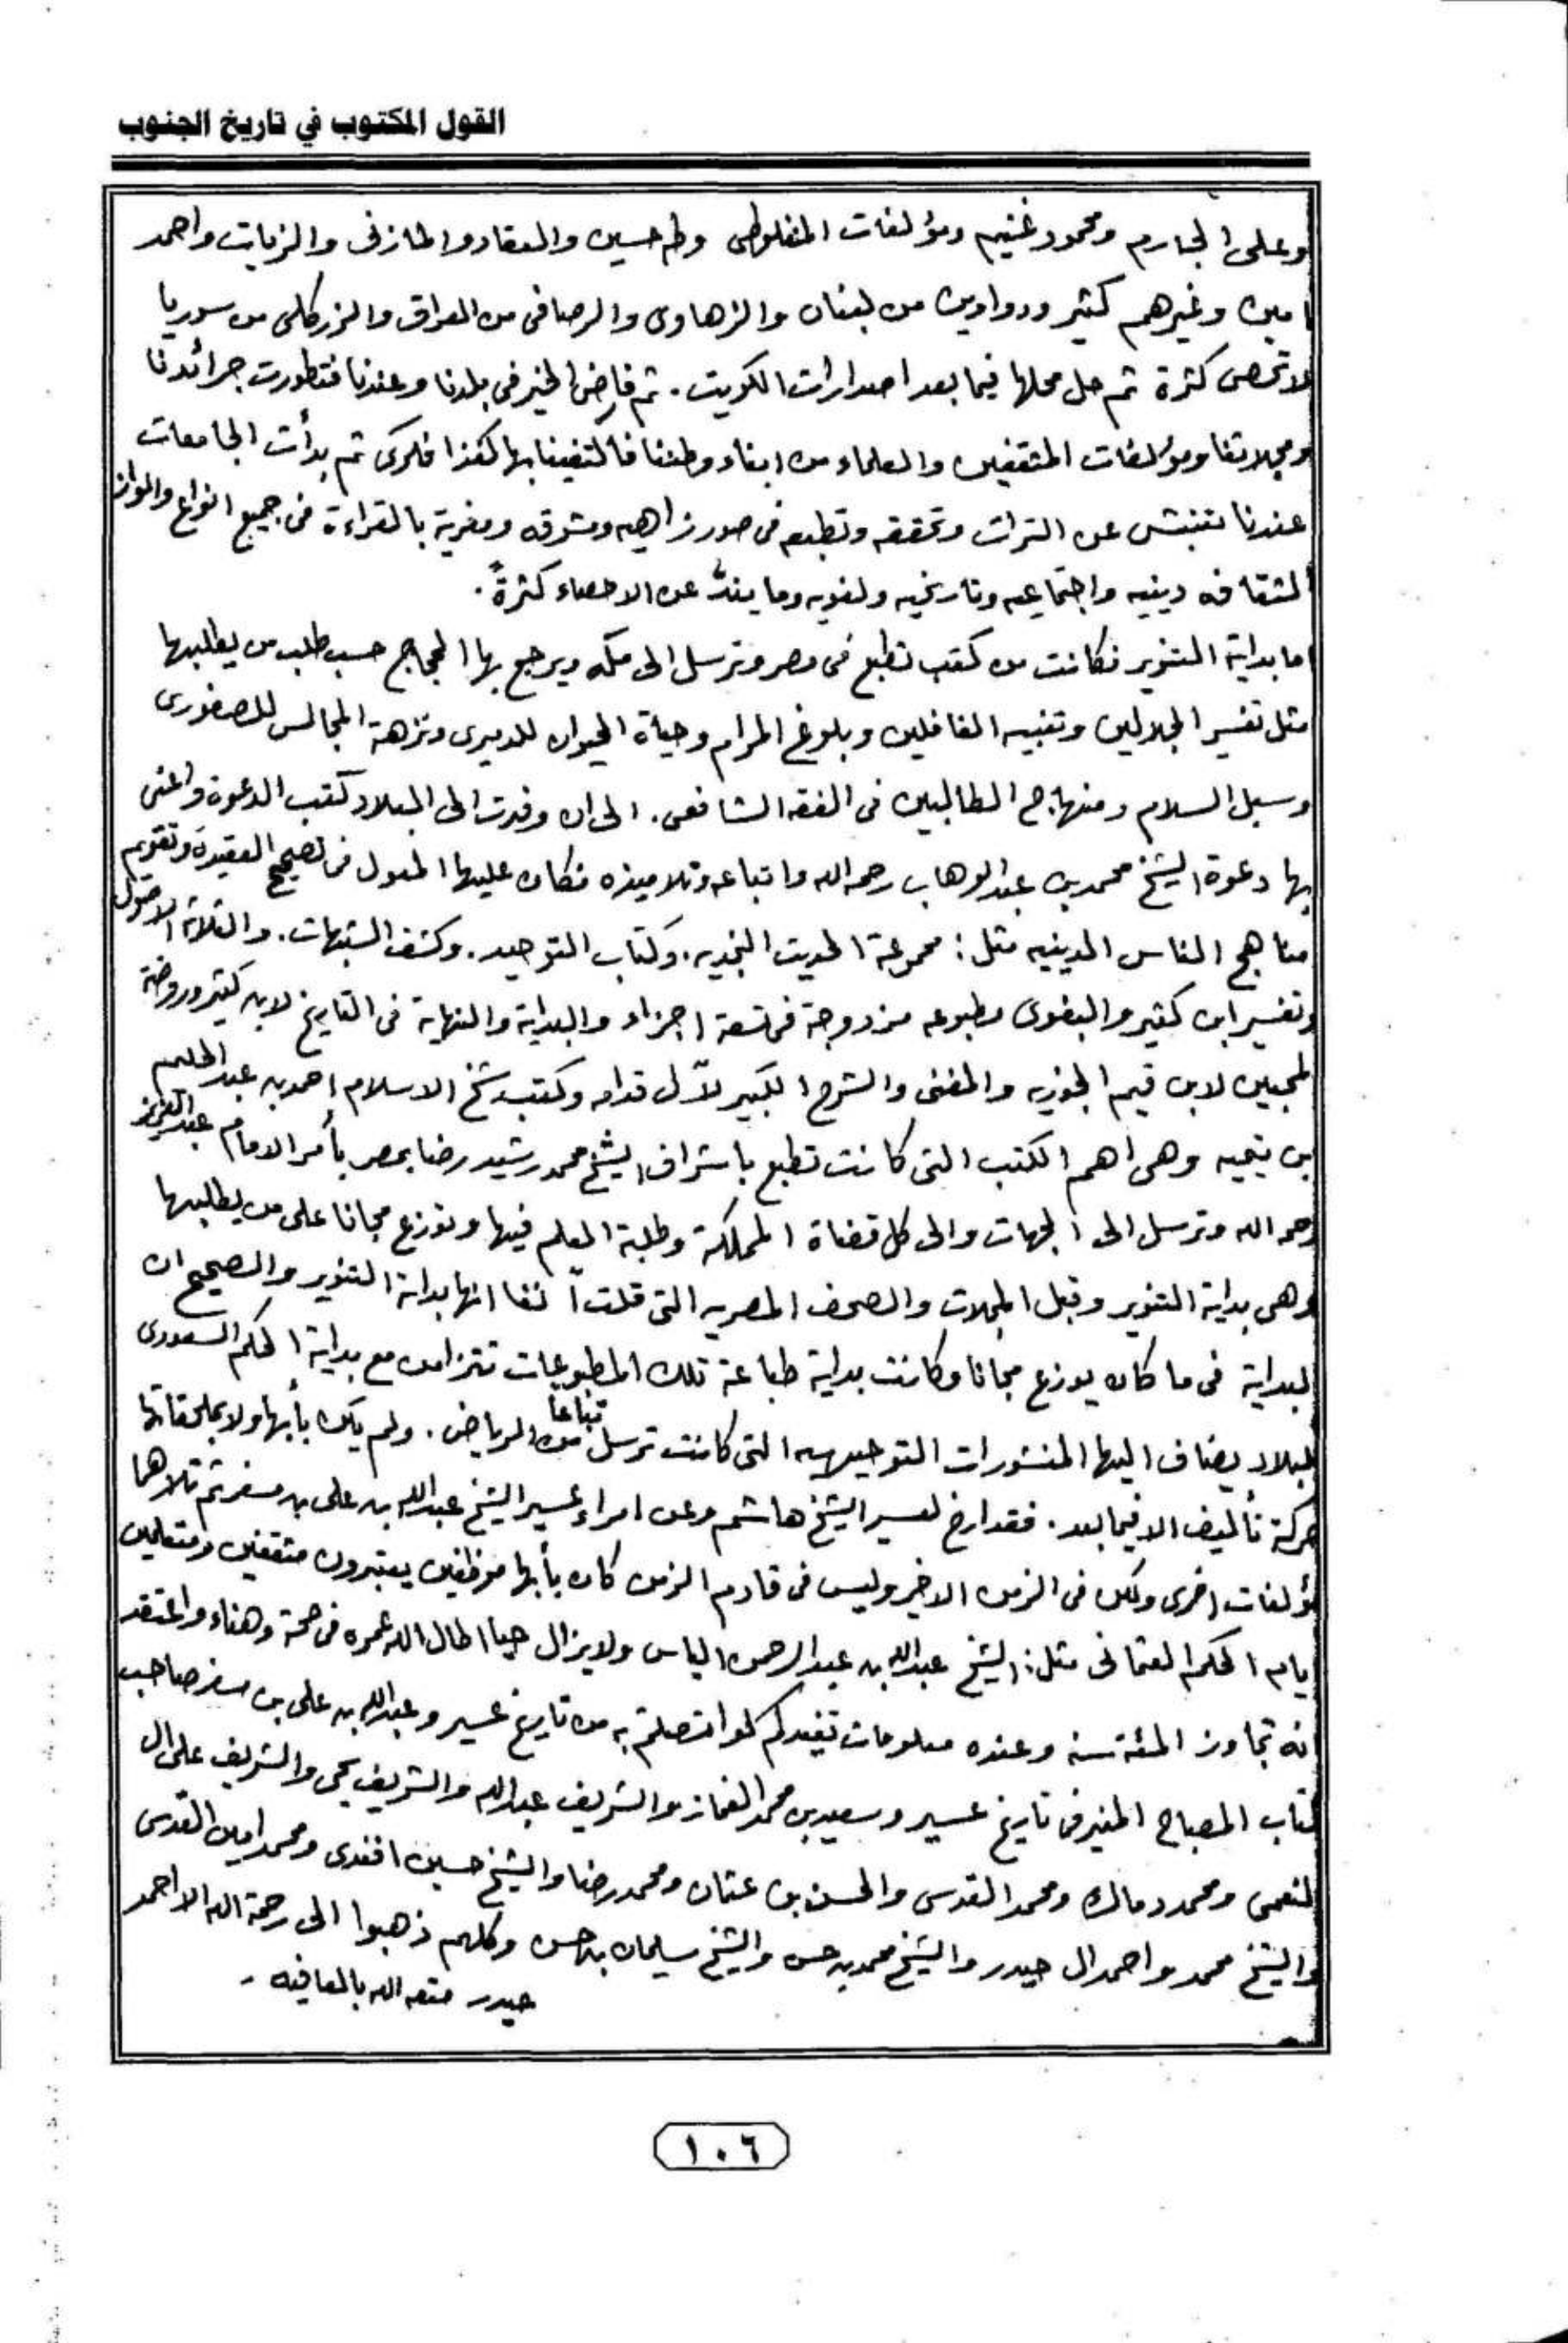 القول المكتوب في تاريخ الجنوب
وعلى الجارم ومحمود غنيم ومؤلفات المنفلوطى وطه حسين والعقاد والمازنى والزيات واحمد
امين وغيرهم كثير ودواوين من لبنان والزهاوى والرصافى من العراق والزركلى من سوريا
لا تحصى كثرة ثم حل محلها فيما بعد اصدارات الكويت . ثم فاض الخير فى بلدنا وعندنا فتطورت جرائدنا
ومجلاتنا ومؤلفات المثقفين والعلماء من ابناء وطننا فاكتفينا بها كغذا فكرى ثم بدأت الجامعات
عندنا تنبش عن التراث وتحققه وتطبعه فى صور زاهيه ومشوقه ومغرية بالقراءة فى جميع انواع والوان
الثقافه دينيه واجتماعيه وتاريخيه ولغويه وما يندّ عن الاحصاء كثرةً .
اما بداية التنوير فكانت من كتب تطبع فى مصر وترسل الى مكه ويرجع بها الحجاج حسب طلب من يطلبها
مثل تفسير الجلالين وتنبيه الغافلين وبلوغ المرام وحياة الحيوان للدميرى ونزهة المجالس للصفورى
وسبل السلام ومنهاج الطالبين فى الفقه الشافعى . الى ان وفدت الى البلاد كتب الدعوة واعنى
بها دعوة الشيخ محمد بن عبد الوهاب رحمه الله واتباعه وتلاميذه فكان عليها المعول فى تصحيح العقيدة وتقويم
مناهج الناس الدينيه مثل : مجموعة الحديث النجديه . وكتاب التوحيد . وكشف الشبهات . والثلاثة الاصول
وتفسير ابن كثير والبغوى مطبوعه مزدوجة فى تسعة اجزاء والبداية والنهاية فى التاريخ لابن كثير وروضة
المحبين لابن قيم الجوزيه والمغنى والشرح الكبير لآل قدامه وكتب شيخ الاسلام احمد بن عبد الحليم
بن تيميه وهى اهم الكتب التى كانت تطبع باشراف الشيخ محمد رشيد رضا بمصر بأمر الامام عبد العزيز
رحمه الله وترسل الى الجهات والى كل قضاة المملكة وطلبة العلم فيها وتوزع مجانا على من يطلبها
وهى بداية التنوير وقبل المجلات والصحف المصريه التى قلت آنفا انها بداية التنوير والصحيح ان
البداية فى ما كان يوزع مجانا وكانت بداية طباعة تلك المطبوعات تتزامن مع بداية الحكم السعودى
للبلاد يضاف اليها المنشورات التوجيهيه التى كانت ترسل تباعاً من الرياض . ولم يكن بأبها ولا بملحقاتها
حركة تأليف الا فيما بعد . فقد ارخ لعسير الشيخ هاشم وعن امراء عسير الشيخ عبد الله بن على بن مسفر ثم تلاهما
مؤلفات اخرى ولكن فى الزمن الاخير وليس فى قادم الزمن كان بأبها موظفين يعتبرون مثقفين ومتعلمين
ايام الحكم العثمانى مثل : الشيخ عبد الله بن عبد الرحمن الياس ولا يزال حيا اطال الله عمره فى صحة وهناء واعتقد
انه تجاوز المئة سنه وعنده معلومات تفيدكم لو اتصلتم به من تاريخ عسير وعبد الله بن على بن مسفر صاحب
كتاب المصباح المنير فى تاريخ عسير وسعيد بن محمد الغماز والشريف عبد الله والشريف يحى والشريف على ال
النعمى ومحمد د مالك ومحمد القدسى والحسن بن عثمان ومحمد رضا والشيخ حسين افندى ومحمد امين القدسى
والشيخ محمد واحمد ال حيدر والشيخ محمد بن حسن والشيخ سليمان بن حسن وكلهم ذهبوا الى رحمة الله الا احمد
حيدر متعه الله بالعافيه -
١٠٦